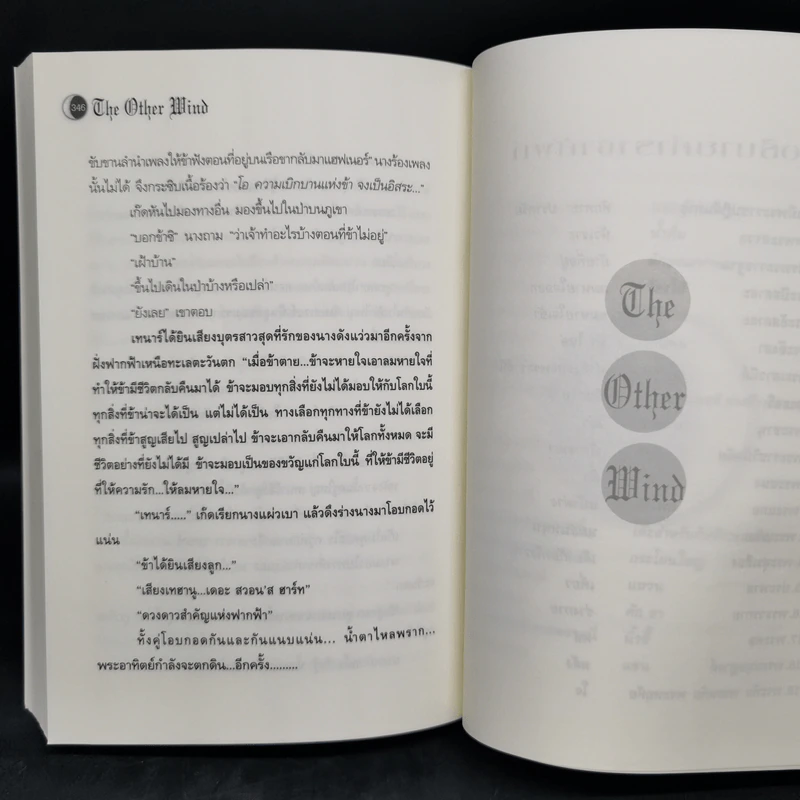 346 The Other Wind
ขับขานลำนำเพลงให้ข้าฟังตอนที่อยู่บนเรือขากลับมาแฮฟเนอร์” นางร้องเพลง
นั้นไม่ได้ จึงกระซิบเนื้อร้องว่า “โอ ความเบิกบานแห่งข้า จงเป็นอิสระ...”
เก็ดหันไปมองทางอื่น มองขึ้นไปในป่าบนภูเขา
“บอกข้าซิ” นางถาม “ว่าเจ้าทำอะไรบ้างตอนที่ข้าไม่อยู่”
“เฝ้าบ้าน”
“ขึ้นไปเดินในป่าบ้างหรือเปล่า”
“ยังเลย” เขาตอบ
เทนาร์ได้ยินเสียงบุตรสาวสุดที่รักของนางดังแว่วมาอีกครั้งจาก
ฝั่งฟากฟ้าเหนือทะเลตะวันตก “เมื่อข้าตาย...ข้าจะหายใจเอาลมหายใจที่
ทำให้ข้ามีชีวิตกลับคืนมาได้ ข้าจะมอบทุกสิ่งที่ยังไม่ได้มอบให้กับโลกใบนี้
ทุกสิ่งที่ข้าน่าจะได้เป็น แต่ไม่ได้เป็น ทางเลือกทุกทางที่ข้ายังไม่ได้เลือก
ทุกสิ่งที่ข้าสูญเสียไป สูญเปล่าไป ข้าจะเอากลับคืนมาให้โลกทั้งหมด จะมี
ชีวิตอย่างที่ยังไม่ได้มี ข้าจะมอบเป็นของขวัญแก่โลกใบนี้ ที่ให้ข้ามีชีวิตอยู่
ที่ให้ความรัก...ให้ลมหายใจ...”
“เทนาร์.....” เก็ดเรียกนางแผ่วเบา แล้วดึงร่างนางมาโอบกอดไว้
แน่น
“ข้าได้ยินเสียงลูก...”
“เสียงเทฮานู...เดอะ สวอน'ส ฮาร์ท”
“ดวงดาวสำคัญแห่งฟากฟ้า”
ทั้งคู่โอบกอดกันและกันแนบแน่น... น้ำตาไหลพราก...
พระอาทิตย์กำลังจะตกดิน...อีกครั้ง.........
The
Other
Wind